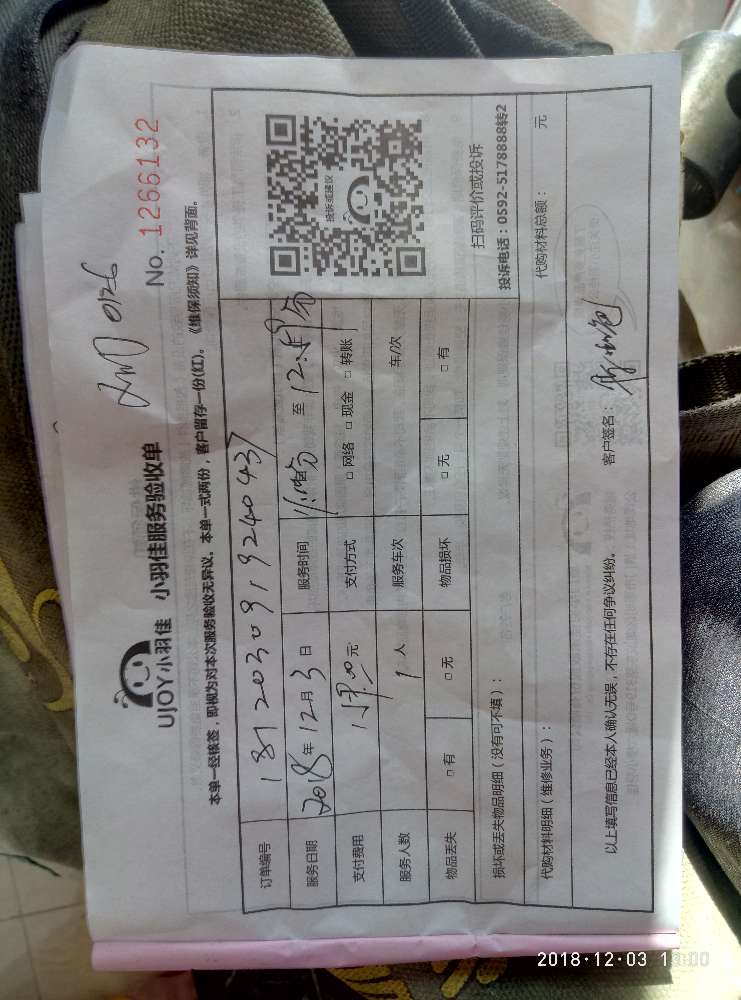 UJOY小羽佳 小羽佳服务验收单
0126
No. 1266132
本单一经核签，即视为对本次服务验收无异议。本单一式两份，客户留存一份(红)。《维保须知》详见背面。
订单编号 1812030919240437
服务日期 2018年12月3日 服务时间 至
支付费用 元 支付方式 □网络 □现金 □转账
服务人数 1人 服务车次 车/次
物品丢失 □有 □无 物品损坏 □无 □有
投诉或建议
扫码评价或投诉
投诉电话：0592-5178888转2
损坏或丢失物品明细（没有可不填）：
代购材料明细（维修业务）： 代购材料总额： 元
以上填写信息已经本人确认无误，不存在任何争议纠纷。 客户签名：
2018·12·03